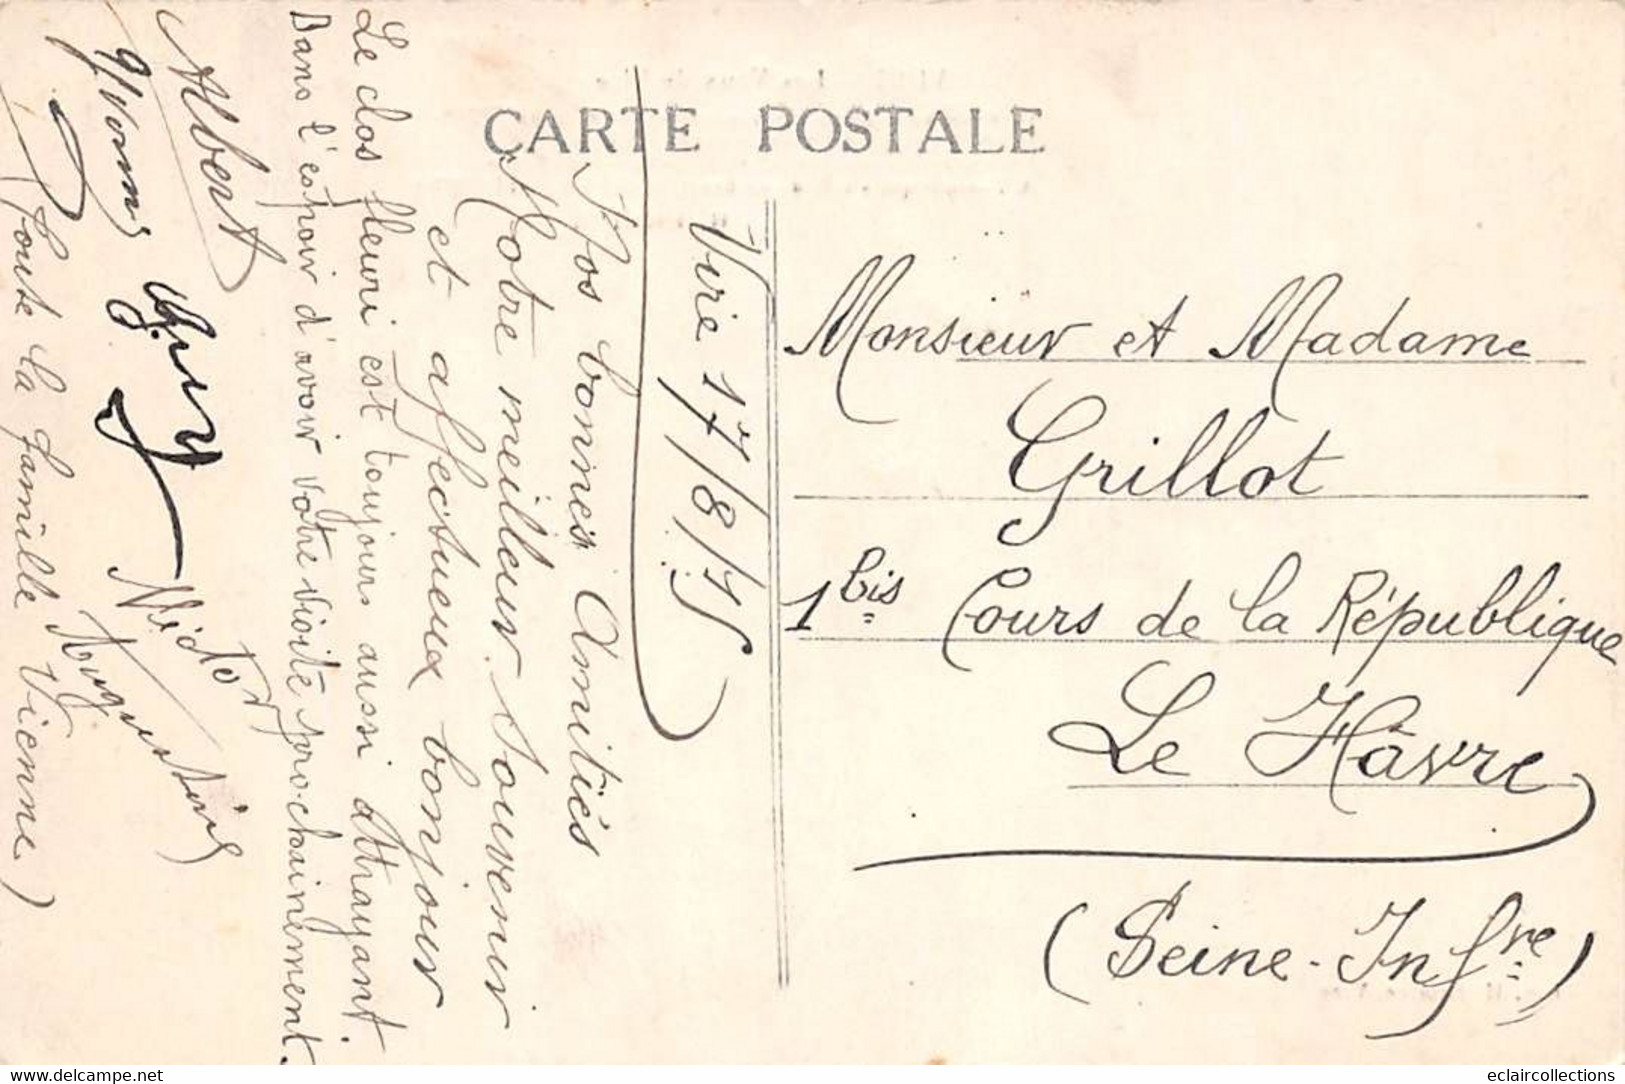 CARTE POSTALE
Vire 17/8/45
Nos bonnes Amitiés
Notre meilleur Souvenir
et affectueux bonjour
Le clos fleuri est toujours aussi attrayant.
Dans l'espoir d'avoir votre visite prochainement.
Albert
Yvonne Guy Victor Augustine
(Toute la famille Vienne)
Monsieur et Madame
Grillot
1 bis Cours de la République
Le Hâvre
(Seine-Infre)
www.delcampe.net
eclaircollections